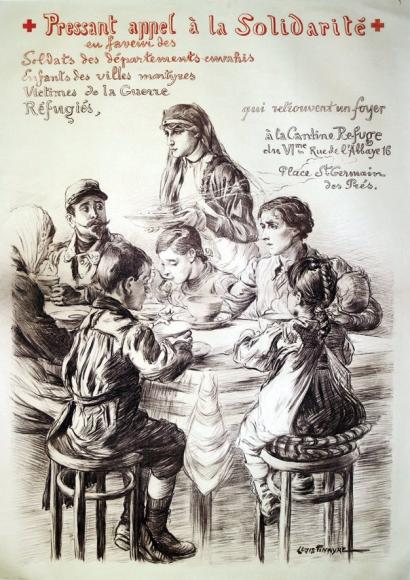 Pressant appel à la Solidarité
en faveur des
Soldats des départements envahis
Enfants des villes martyres
Victimes de la Guerre
Réfugiés,
qui retrouvent un foyer
à la Cantine Refuge
du VIme Rue de l'Abbaye 16
Place St Germain
des Prés.
LOUIS TINAYRE